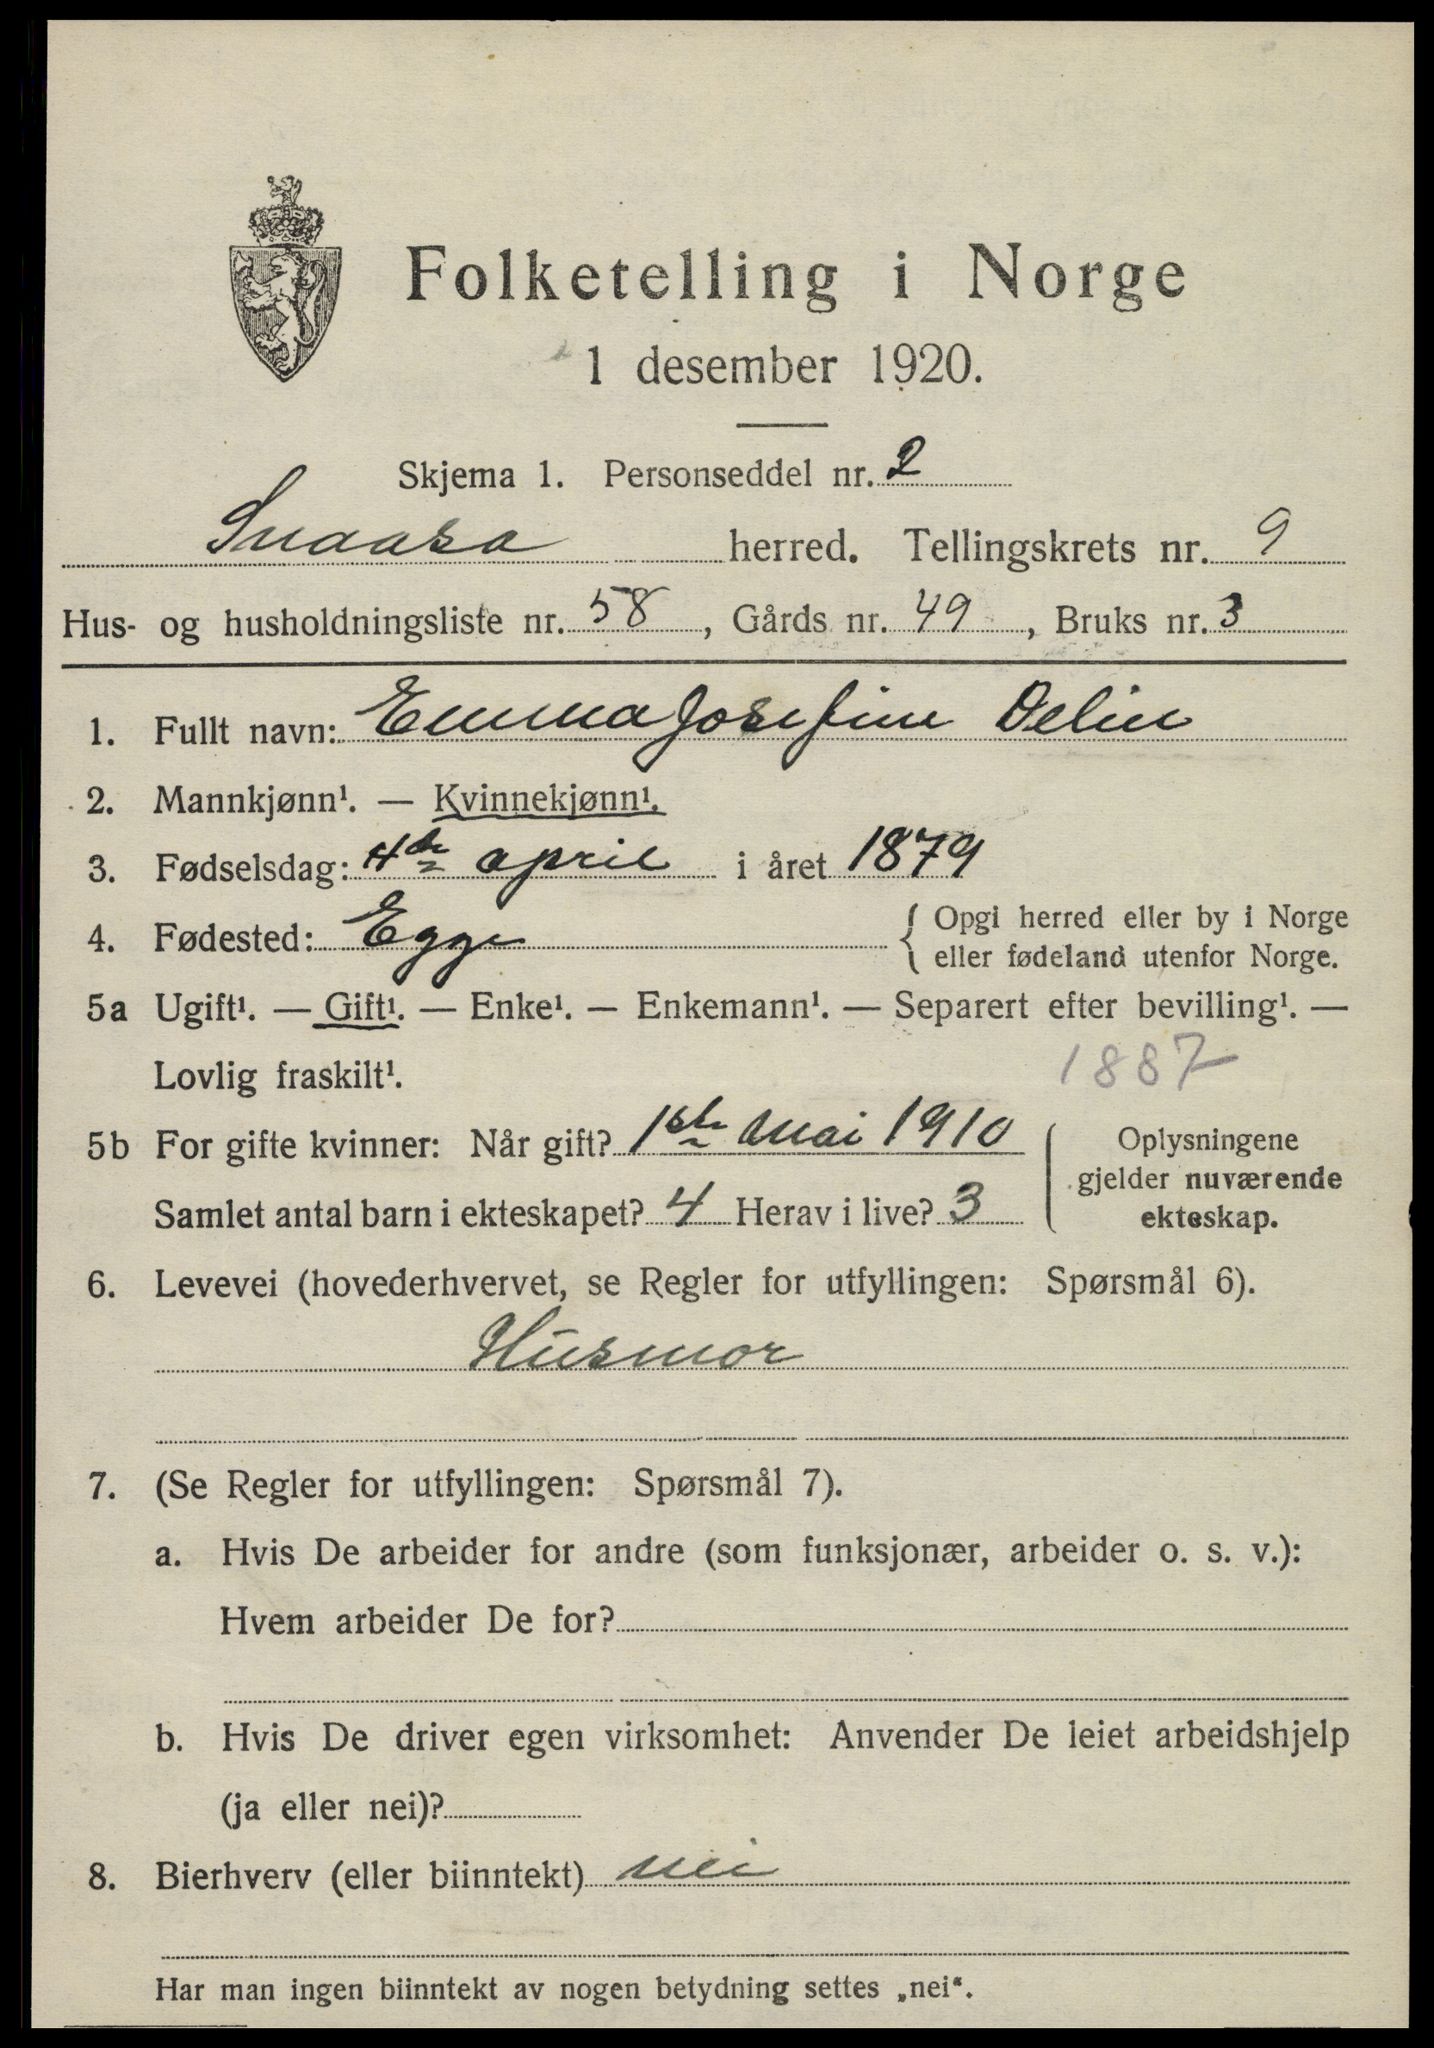 Folketelling i Norge
1 desember 1920.
Skjema 1. Personseddel nr. 2
Snaasa herred. Tellingskrets nr. 9
Hus- og husholdningsliste nr. 58, Gårds nr. 49, Bruks nr. 3
1. Fullt navn: Emma Josefine Delin
2. Mannkjønn¹. — Kvinnekjønn¹.
3. Fødselsdag: 4de april i året 1879
4. Fødested: Egge { Opgi herred eller by i Norge
eller fødeland utenfor Norge.
5a Ugift¹. — Gift¹. — Enke¹. — Enkemann¹. — Separert efter bevilling¹. —
Lovlig fraskilt¹. 1887
5b For gifte kvinner: Når gift? 1ste Mai 1910
Samlet antal barn i ekteskapet? 4 Herav i live? 3
Oplysningene
gjelder nuværende
ekteskap.
6. Levevei (hovederhvervet, se Regler for utfyllingen: Spørsmål 6).
Husmor
7. (Se Regler for utfyllingen: Spørsmål 7).
a. Hvis De arbeider for andre (som funksjonær, arbeider o. s. v.):
Hvem arbeider De for?
b. Hvis De driver egen virksomhet: Anvender De leiet arbeidshjelp
(ja eller nei)?
8. Bierhverv (eller biinntekt) nei
Har man ingen biinntekt av nogen betydning settes „nei“.